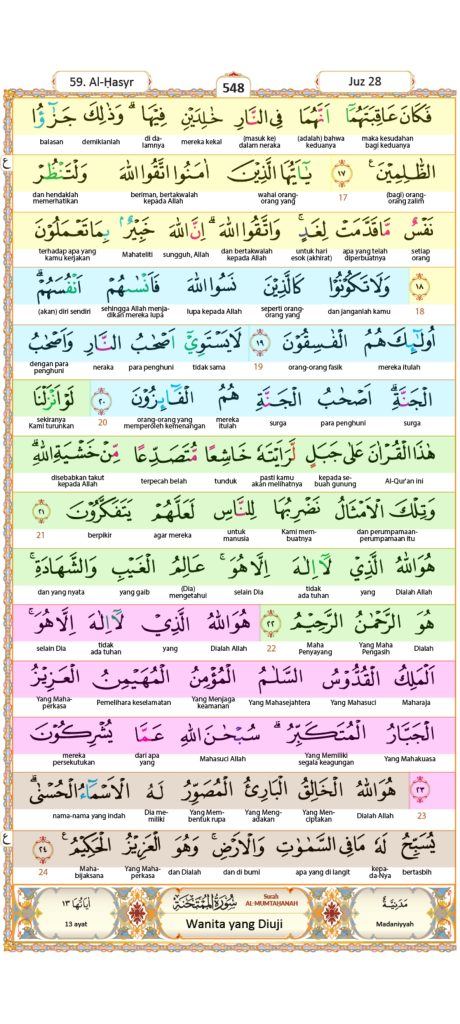 59. Al-Ḥasyr 548 Juz 28
فَكَانَ عَاقِبَتَهُمَآ اَنَّهُمَا فِى النَّارِ خٰلِدَيْنِ فِيْهَاۗ وَذٰلِكَ جَزٰۤؤُا
maka kesudahan bagi keduanya (adalah) bahwa keduanya (masuk ke) dalam neraka mereka kekal di da-lamnya demikianlah balasan
الظّٰلِمِيْنَ ࣖ ١٧ يٰٓاَيُّهَا الَّذِيْنَ اٰمَنُوا اتَّقُوا اللّٰهَ وَلْتَنْظُرْ
(bagi) orang-orang zalim 17 wahai orang-orang yang beriman, bertakwalah kepada Allah dan hendaklah memerhatikan
نَفْسٌ مَّا قَدَّمَتْ لِغَدٍۚ وَاتَّقُوا اللّٰهَ ۗاِنَّ اللّٰهَ خَبِيْرٌ ۢبِمَا تَعْمَلُوْنَ
setiap orang apa yang telah diperbuatnya untuk hari esok (akhirat) dan bertakwalah kepada Allah sungguh, Allah Mahateliti terhadap apa yang kamu kerjakan
١٨ وَلَا تَكُوْنُوْا كَالَّذِيْنَ نَسُوا اللّٰهَ فَاَنْسٰىهُمْ اَنْفُسَهُمْۗ
18 dan janganlah kamu seperti orang-orang yang lupa kepada Allah sehingga Allah menja-dikan mereka lupa (akan) diri sendiri
اُولٰۤىِٕكَ هُمُ الْفٰسِقُوْنَ ١٩ لَا يَسْتَوِيْٓ اَصْحٰبُ النَّارِ وَاَصْحٰبُ
mereka itulah orang-orang fasik 19 tidak sama para penghuni neraka dengan para penghuni
الْجَنَّةِۗ اَصْحٰبُ الْجَنَّةِ هُمُ الْفَاۤىِٕزُوْنَ ٢٠ لَوْ اَنْزَلْنَا
surga para penghuni surga mereka itulah orang-orang yang memperoleh kemenangan 20 sekiranya Kami turunkan
هٰذَا الْقُرْاٰنَ عَلٰى جَبَلٍ لَّرَاَيْتَهٗ خَاشِعًا مُّتَصَدِّعًا مِّنْ خَشْيَةِ اللّٰهِ ۗ
Al-Qur'an ini kepada se-buah gunung pasti kamu akan melihatnya tunduk terpecah belah disebabkan takut kepada Allah
وَتِلْكَ الْاَمْثَالُ نَضْرِبُهَا لِلنَّاسِ لَعَلَّهُمْ يَتَفَكَّرُوْنَ ٢١
dan perumpamaan-perumpamaan itu Kami mem-buatnya untuk manusia agar mereka berpikir 21
هُوَ اللّٰهُ الَّذِيْ لَآ اِلٰهَ اِلَّا هُوَۚ عَالِمُ الْغَيْبِ وَالشَّهَادَةِۚ
Dialah Allah yang tidak ada tuhan selain Dia (Dia) mengetahui yang gaib dan yang nyata
هُوَ الرَّحْمٰنُ الرَّحِيْمُ ٢٢ هُوَ اللّٰهُ الَّذِيْ لَآ اِلٰهَ اِلَّا هُوَ ۚ
Dialah Yang Maha Pengasih Maha Penyayang 22 Dialah Allah yang tidak ada tuhan selain Dia
اَلْمَلِكُ الْقُدُّوْسُ السَّلٰمُ الْمُؤْمِنُ الْمُهَيْمِنُ الْعَزِيْزُ
Maharaja Yang Mahasuci Yang Mahasejahtera Yang Menjaga keamanan Pemelihara keselamatan Yang Maha-perkasa
الْجَبَّارُ الْمُتَكَبِّرُ ۗ سُبْحٰنَ اللّٰهِ عَمَّا يُشْرِكُوْنَ
Yang Mahakuasa Yang Memiliki segala keagungan Mahasuci Allah dari apa yang mereka persekutukan
٢٣ هُوَ اللّٰهُ الْخَالِقُ الْبَارِئُ الْمُصَوِّرُ لَهُ الْاَسْمَاۤءُ الْحُسْنٰىۗ
23 Dialah Allah Yang Men-ciptakan Yang Meng-adakan Yang Mem-bentuk rupa Dia me-miliki nama-nama yang indah
يُسَبِّحُ لَهٗ مَا فِى السَّمٰوٰتِ وَالْاَرْضِۚ وَهُوَ الْعَزِيْزُ الْحَكِيْمُ ࣖ ٢٤
bertasbih kepa-da-Nya apa yang di langit dan di bumi dan Dialah Yang Maha-perkasa Maha-bijaksana 24
مَدَنِيَّة سُوْرَةُ الْمُمْتَحَنَةِ Surah AL-MUMTAḤANAH اٰيَاتُهَا ١٣
Madaniyyah Wanita yang Diuji 13 ayat
ع
ع